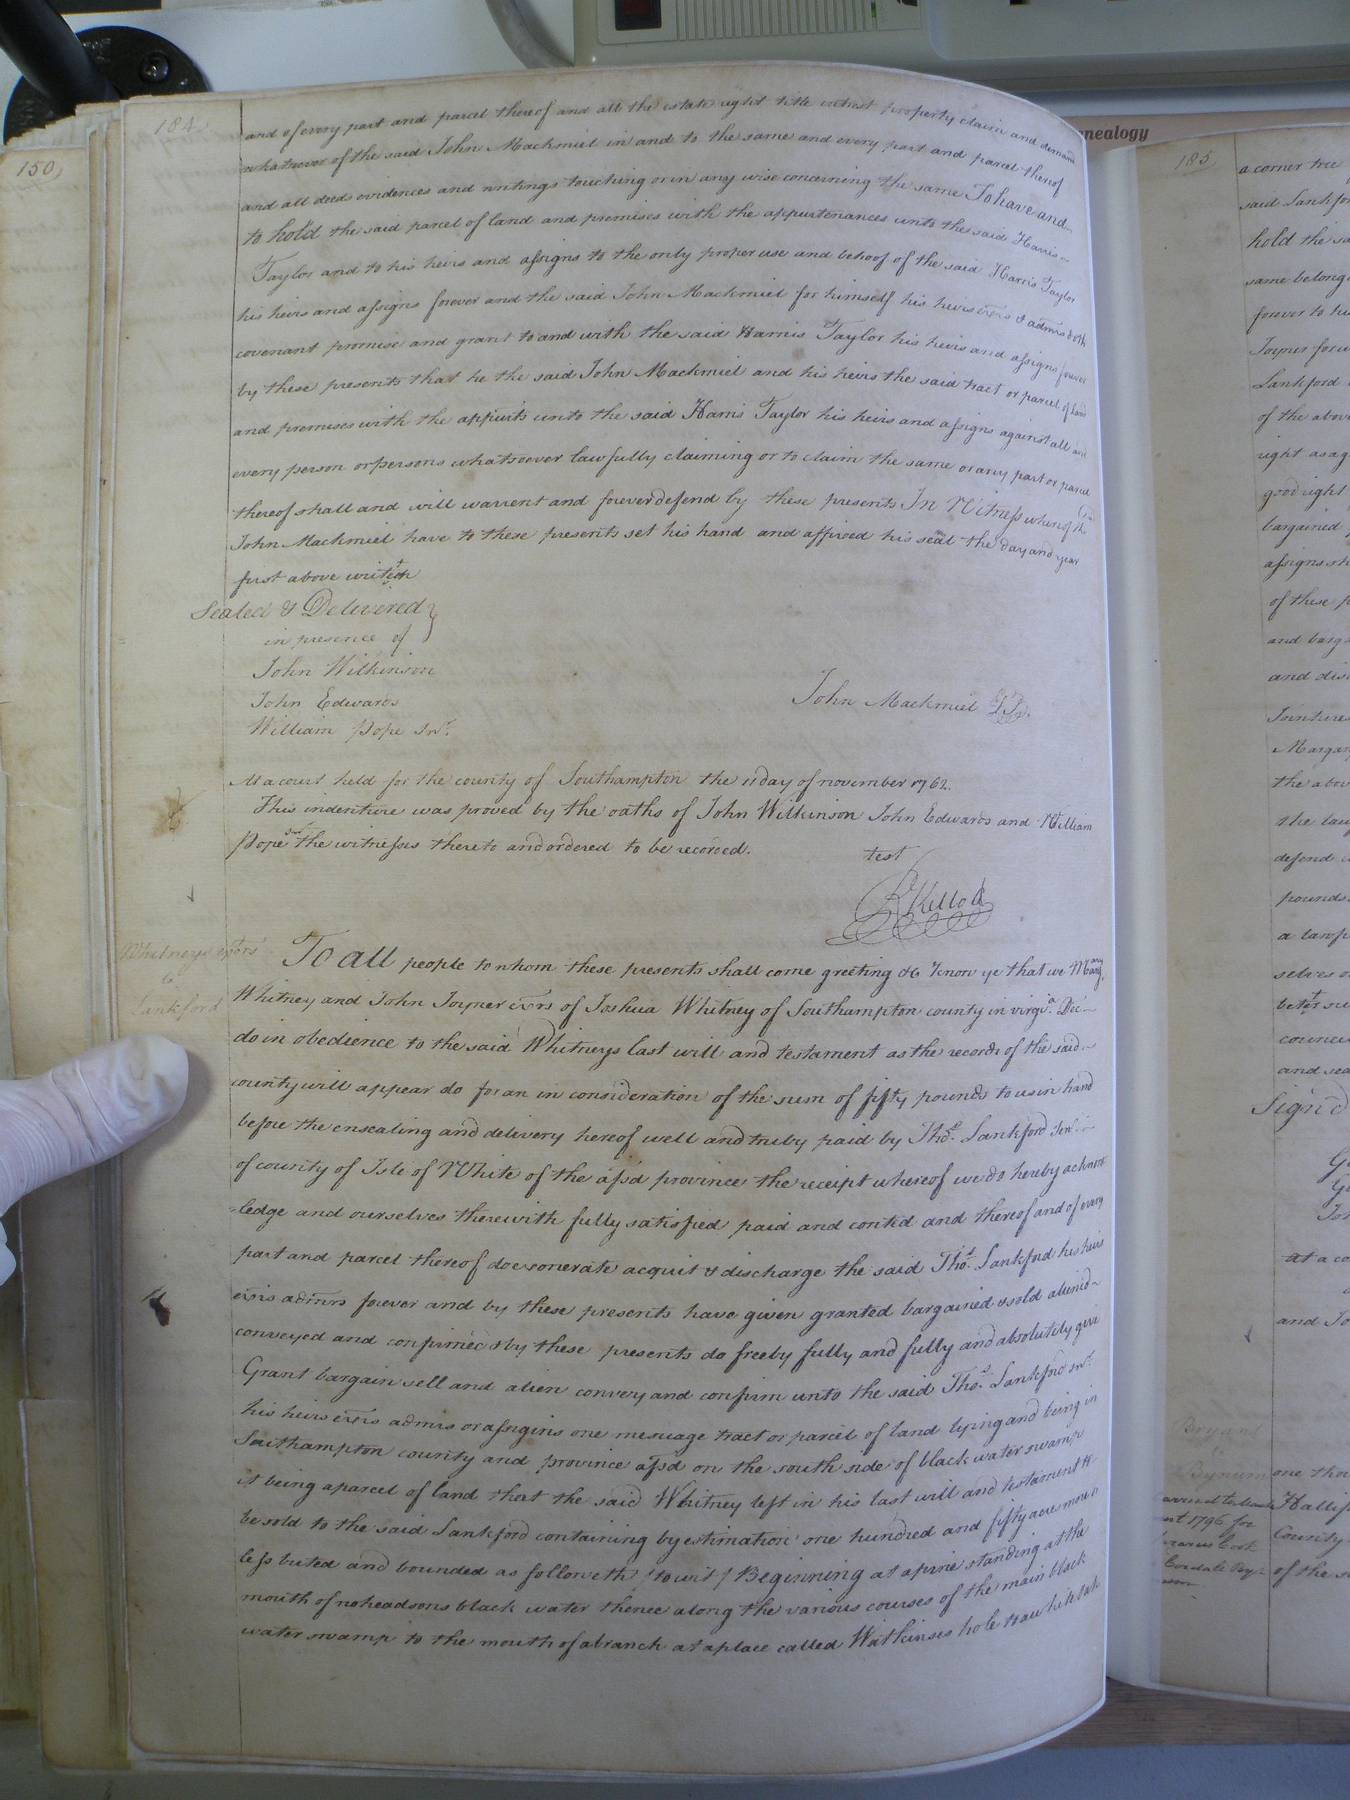 150,
184
and of every part and parcel thereof and all the estate right title intrest property claim and demand
whatsoever of the said John Mackmiel in and to the same and every part and parcel thereof
and all deed evidences and writings touching or in any wise concerning the same To have and
to hold the said parcel of land and premises with the appurtenances unto the said Harris
Taylor and to his heirs and assigns to the only proper use and behoof of the said Harris Taylor
his heirs and assigns forever and the said John Mackmiel for himself his heirs exrs & admrs doth
covenant promise and grant to and with the said Harris Taylor his heirs and assigns forever
by these presents that he the said John Mackmiel and his heirs the said tract or parcel of land
and premises with the appurts unto the said Harris Taylor his heirs and assigns against all and
every person or persons whatsoever lawfully claiming or to claim the same or any part or parcel
thereof shall and will warrent and forever defend by these presents In Witness whereof the said
John Mackmiel have to these presents set his hand and affixed his seal the day and year
first above
Sealed & Delivered }
in presence of
John Wilkinson
John Edwards
John Mackmiel
William Pope Snr.
At a court held for the county of Southampton the 11 day of november 1762.
This indenture was proved by the oaths of John Wilkinson John Edwards and William
Pope Snr the witnesses thereto and ordered to be recorded.
test
R Kello
Whitneys exors
to
Lankford
To all people to whom these presents shall come greeting &c Know ye that we Mary
Whitney and John Joyner exrs of Joshua Whitney of Southampton county in virgia. Dec
do in obedience to the said Whitneys last will and testament as the records of the said
county will appear do for an in consideration of the sum of fifty pounds to us in hand
before the ensealing and delivery hereof well and truly paid by Thos. Lankford Snr
of county of Isle of White of the afsd province the receipt whereof we do hereby acknow
ledge and ourselves therewith fully satisfied paid and contd and thereof and of every
part and parcel thereof do exonerate acquit & discharge the said Thos. Lankford his heirs
exrs admrs forever and by these presents have given granted bargained & sold aliend
conveyed and confirmed & by these presents do freely fully and fully and absolutely give
Grant bargain sell and alien convey and confirm unto the said Thos. Lankford Snr.
his heirs exrs admrs or assigins one mesuage tract or parcel of land lying and being in
Southampton county and province afsd on the south side of black water swamp
it being a parcel of land that the said Whitney left in his last will and testament to
be sold to the said Lankford containing by estimation one hundred and fifty acres more or
less buted and bounded as followeth / to wit / Beginning at a pine standing at the
mouth of noheadsons black water thence along the various courses of the main black
water swamp to the mouth of a branch at a place called Watkinses hole
enealogy
185
a corner tree
said Lankfor
hold the sa
same belong
forever to hi
Joyner for
Lankford
of the abov
right as ag
good right
bargained
assigns sh
of these p
and barg
and dis
Jointures
Margar
the abov
she law
defend
pounds
a lawf
selves
councu
and sea
Sign'd
At a co
and Jo
Bryant
Bynum
one tho
Hallif
County
of the s